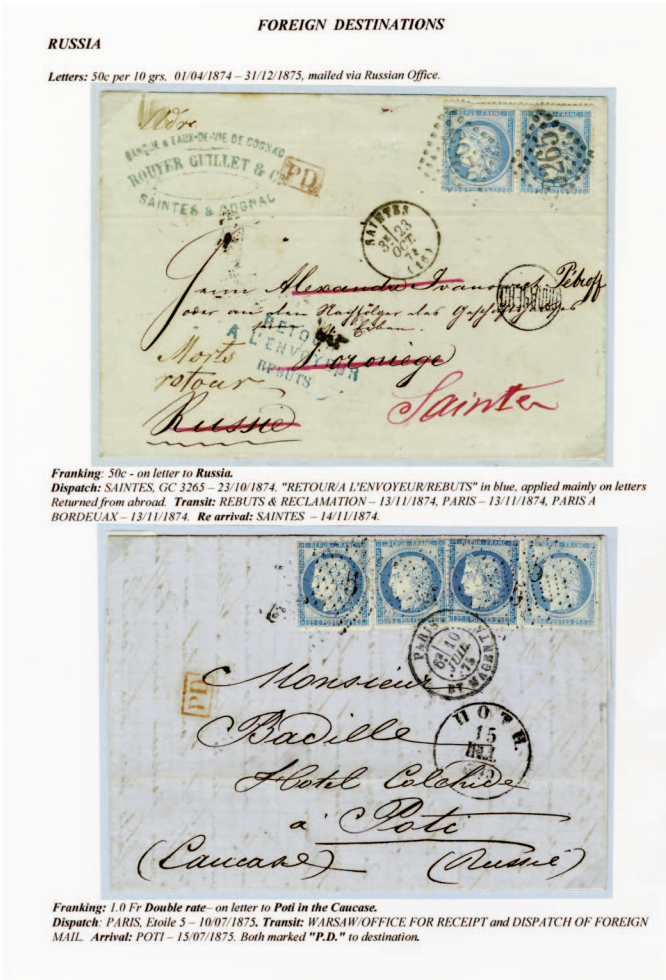 FOREIGN DESTINATIONS
RUSSIA
Letters: 50c per 10 grs, 01/04/1874 – 31/12/1875, mailed via Russian Office.
BANQUE & EAUX-DE-VIE DE COGNAC
ROUYER GUILLET & Cº
SAINTES & COGNAC
PD
3265
SAINTES
3E 23
OCT.
74
(16)
Herrn Alexandre Ivanovitch Pétroff
oder an den Nachfolger des Geschäftes
RETOUR
A L'ENVOYEUR
REBUTS
Morts
retour
Voroniège
Russie
Saintes
Franking: 50c - on letter to Russia.
Dispatch: SAINTES, GC 3265 – 23/10/1874. "RETOUR/A L'ENVOYEUR/REBUTS" in blue, applied mainly on letters
Returned from abroad. Transit: REBUTS & RECLAMATION – 13/11/1874, PARIS – 13/11/1874, PARIS A
BORDEUAX – 13/11/1874. Re arrival: SAINTES – 14/11/1874.
REPUB FRANC
25 C POSTES 25 C
PARIS
6E 10
JUIL.
75
PD
ПОТИ.
15
Monsieur
Badille
Hotel Colchide
à Poti
(Caucase) (Russie)
Franking: 1.0 Fr Double rate– on letter to Poti in the Caucase.
Dispatch: PARIS, Etoile 5 – 10/07/1875. Transit: WARSAW/OFFICE FOR RECEIPT and DISPATCH OF FOREIGN
MAIL. Arrival: POTI – 15/07/1875. Both marked "P.D." to destination.